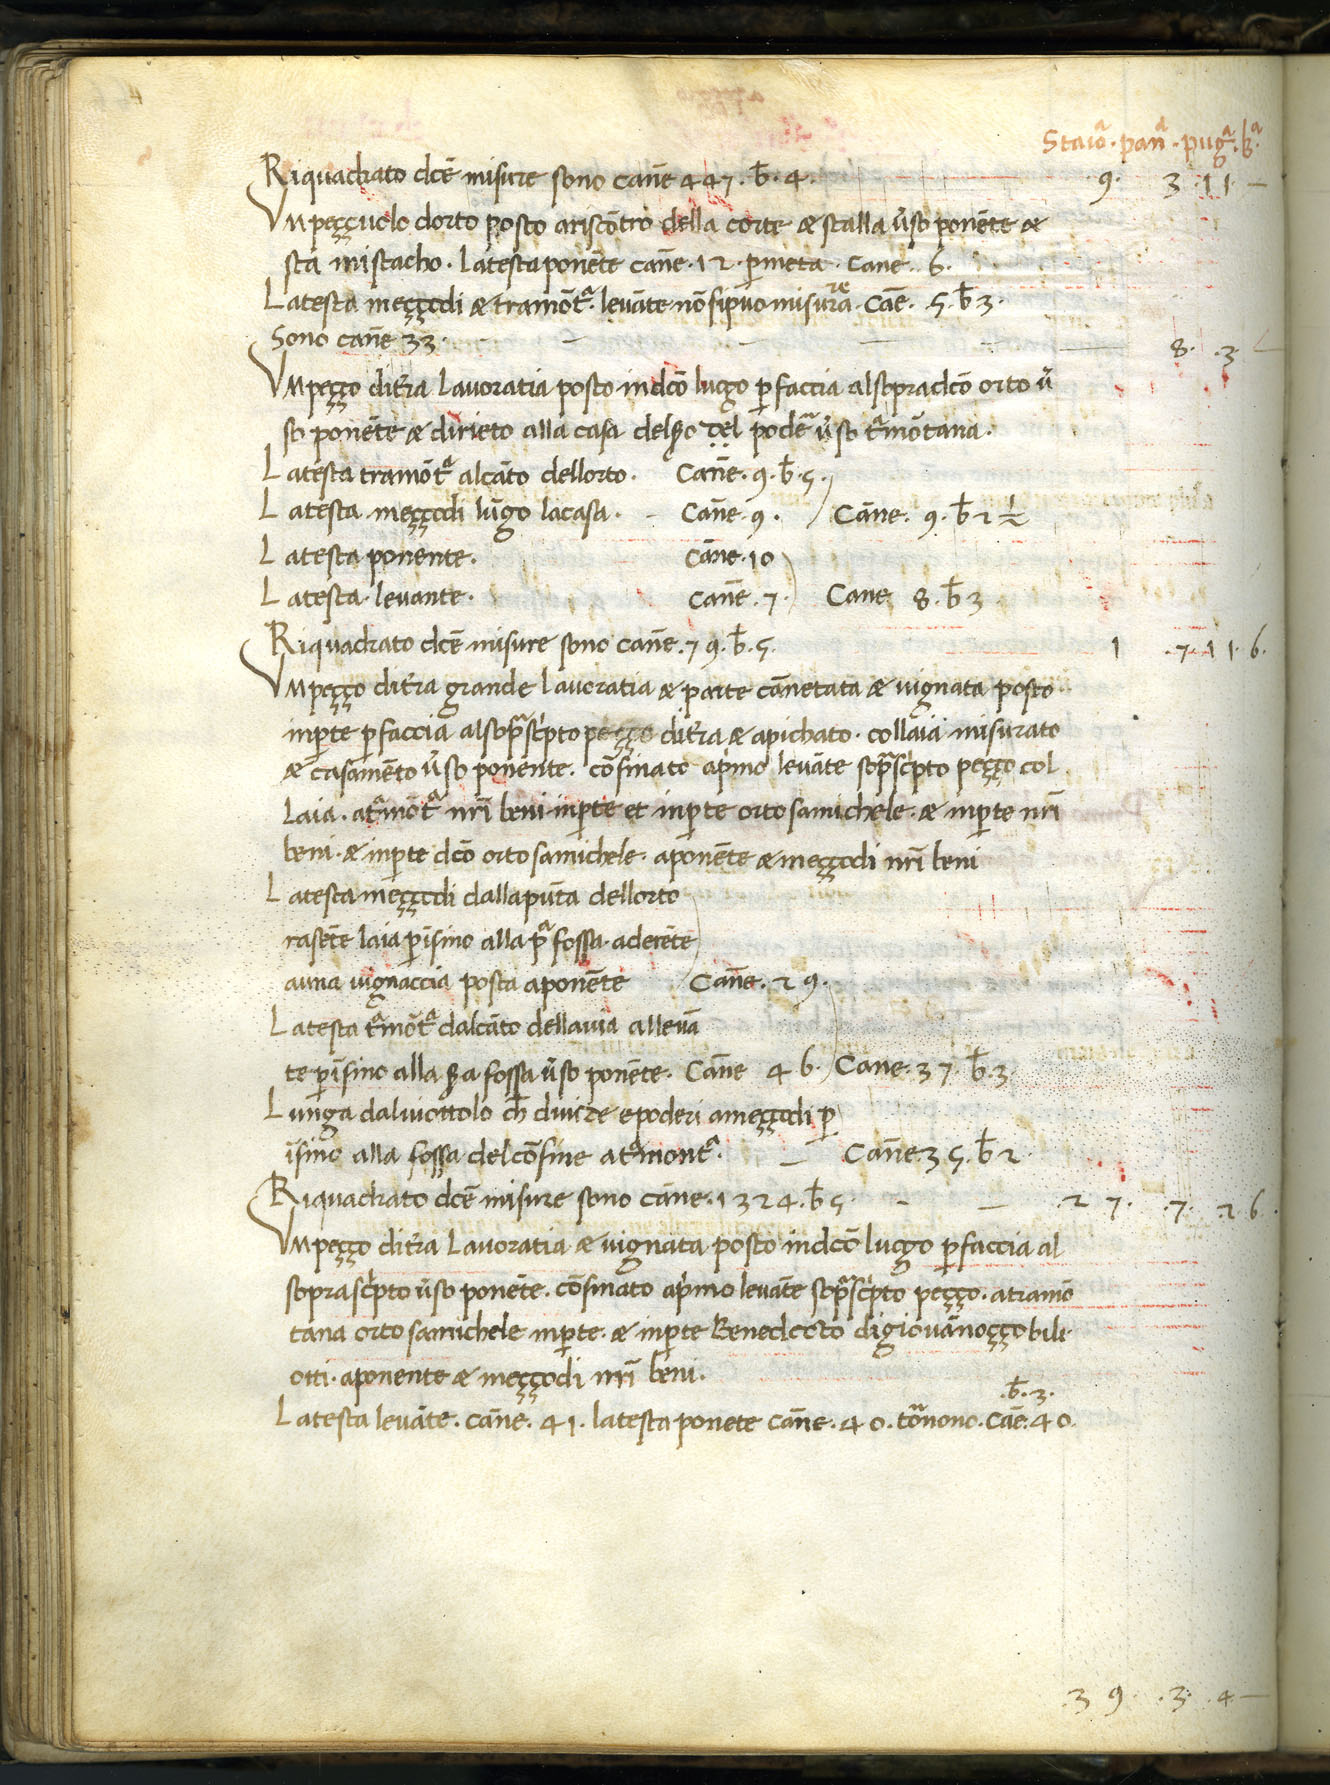 Staiᵒ · panᵃ · pugᵃ · bᵃ
Riquadrato dcē misure sono cañe 447 · b̄ · 4 · 9 · 3 · 11 · —
Vmpeççuolo dorto posto ariscōtro della corte & stalla ūso ponēte &
sta mistacho · Latesta ponēte cañe · 12 · p̱meta · Cane · 6 ·
Latesta meççodi & tramōtᵃ · levāte nōsipuo misurare · Cāe · 5 · b̄ 3 ·
Sono cañe 33 · — 8 · 3 · —
Vmpeçço ditr̄a Lauoratia posto indcō luogo p̱ faccia alsopradcō orto ū
so ponēte & dirieto alla casa del del podeᵃ ūso tᵃmōtana ·
Latesta tramōtᵃ alcāto dellorto · Cañe · 9 · b̄ · 5 ·
Latesta meççodi lūgo lacasa · Cañe · 9 · Cāne · 9 · b̄ 2 ½
Latesta ponente · Cāne · 10
Latesta levante · Cañe · 7 · Cane 8 · b̄ 3
Riquadrato dcē misure sono cañe · 79 · b̄ · 5 · 1 · 7 · 11 · 6 ·
Vmpeçço ditr̄a grande Lauoratia & parte cānetata & vignata posto
inp̱te p̱ faccia alsopᵃscr̄pto peçço ditr̄a & apichato · collaia misurato
& casamēto ūso ponente · cōfinato apⁱmo levāte sopᵃscr̄pto peçço col
Laia · atᵃmōtᵃ nr̄i beni inp̱te et inp̱te orto samichele · & inp̱te nr̄i
beni · & inp̱te dcō orto samichele · aponēte & meççodi nr̄i beni
Latesta meççodi dalla pūta dellorto
rasēte laia p̱īsino alla pᵃ fossa · aderēte
auna vignaccia posta aponēte Cañe · 29 ·
Latesta tᵃmōtᵃ dalcāto dellauia alleuā
te p̱īsino alla fossa ūso ponēte · Cāne 46 · Cane · 37 · b̄ · 3
Lunga dalviottolo ch̄ divide epoderi ameççodi p̱
īsino alla fossa delcōfine atᵃmontᵃ · — Cañe 35 · b̄ 2 ·
Riquadrato dcē misure sono cāne · 1324 · b̄ 5 · — 27 · 7 · 2 6 ·
Vmpeçço ditr̄a Lauoratia & vignata posto indcō luogo p̱ faccia al
soprascr̄pto ūso ponēte · cōfinato apⁱmo levāte sopᵃscr̄pto peçço · atramō
tana orto samichele inp̱te · & inp̱te Benedecto digiovānoçço bili
otti · aponente & meççodi nr̄i beni ·
Latesta levāte · cāne · 41 · latesta ponete cāne · 40 · tōᵃnono · Cāe · 40 · b̄ · 3 ·
39 · 3 · 4 —